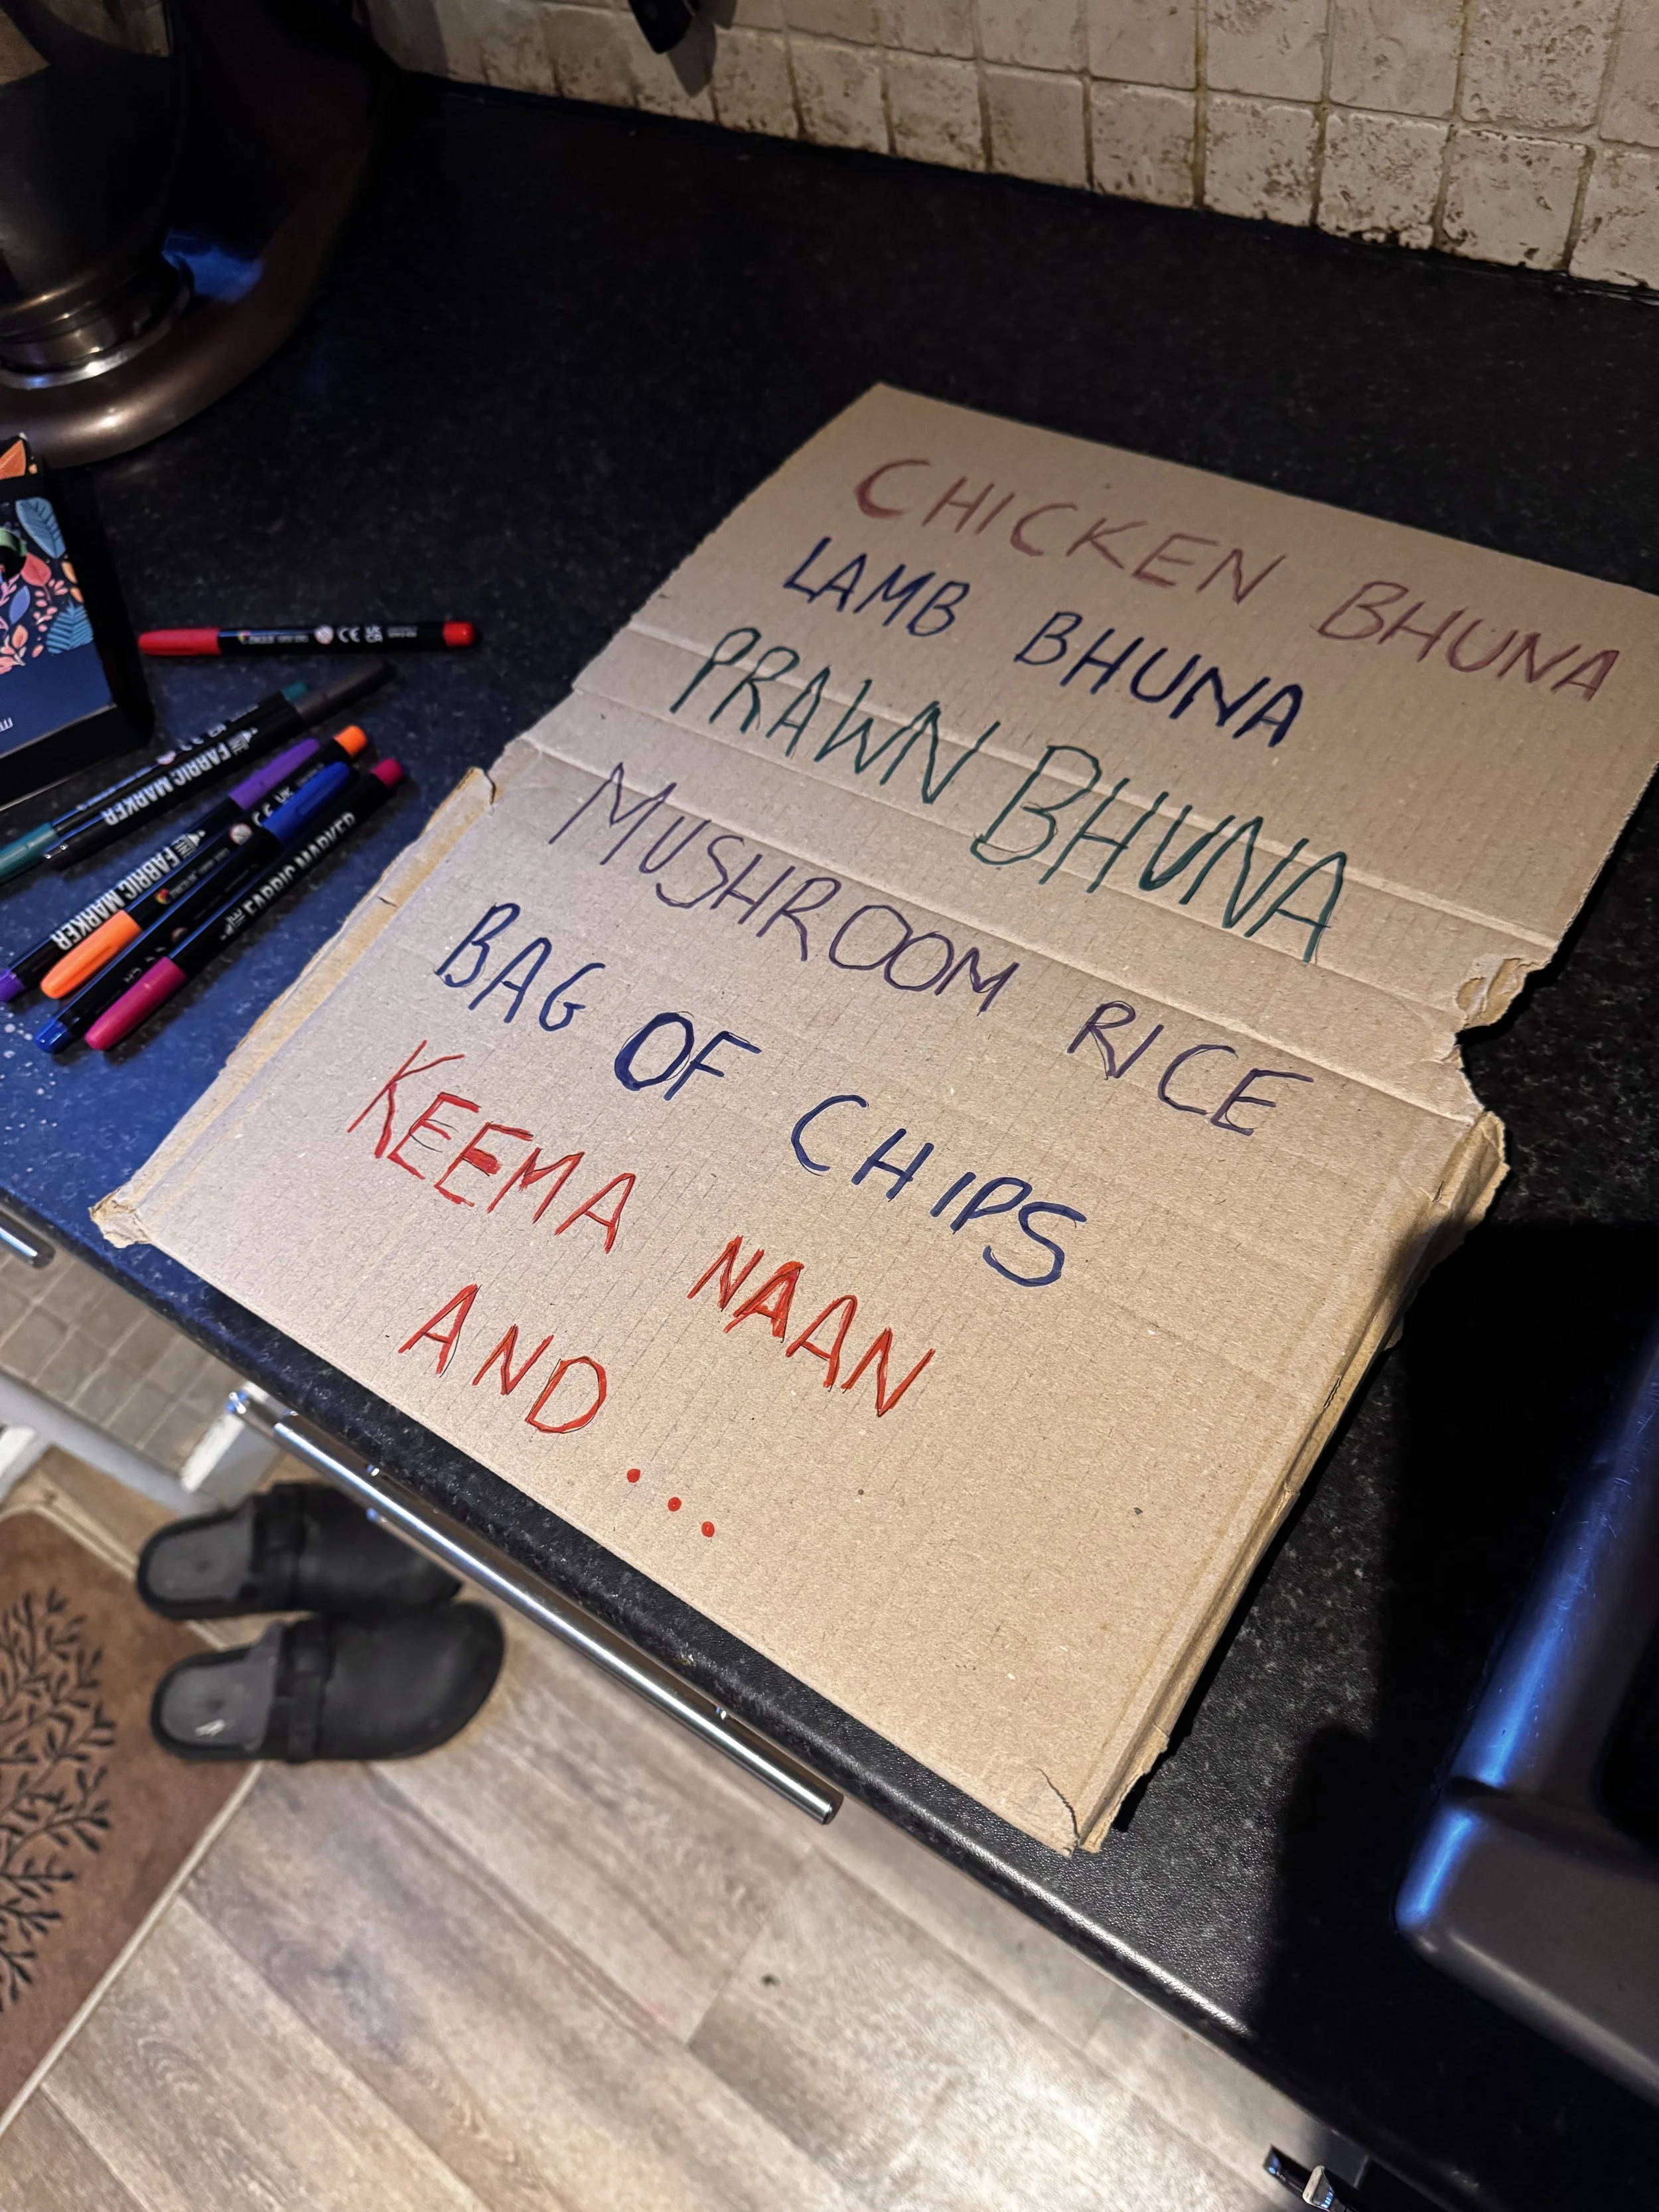 CHICKEN BHUNA
LAMB BHUNA
PRAWN BHUNA
MUSHROOM RICE
BAG OF CHIPS
KEEMA NAAN
AND ...
FABRIC MARKER
FABRIC MARKER
FABRIC MARKER